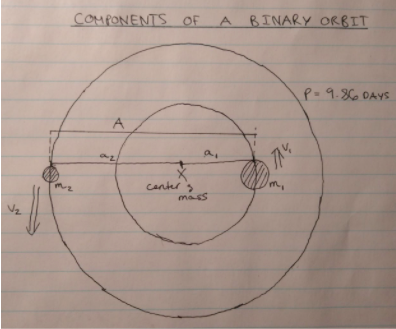 COMPONENTS OF A BINARY ORBIT
P = 9.86 DAYS
A
a₂ a₁ V₁
m₂ center of mass m₁
V₂